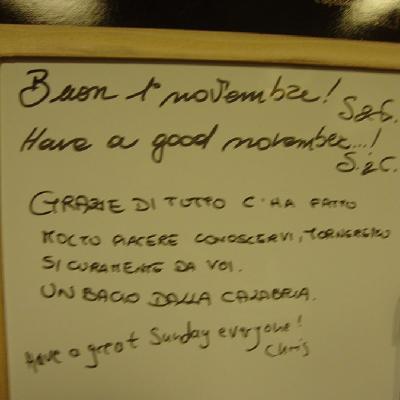 Buon 1° novembre!
S&G.
Have a good november...!
S. & C.
GRAZIE DI TUTTO C'HA FATTO
MOLTO PIACERE CONOSCERVI, TORNEREMO
SICURAMENTE DA VOI.
UN BACIO DALLA CALABRIA.
Have a great Sunday everyone!
Chris